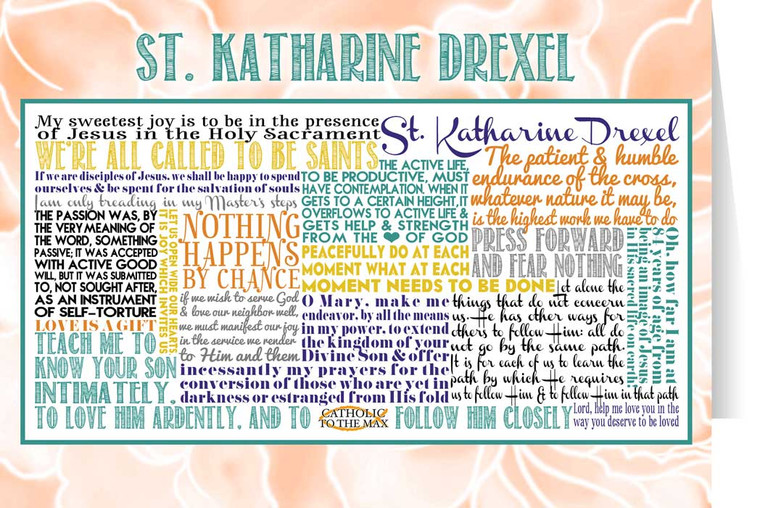 ST. KATHARINE DREXEL
My sweetest joy is to be in the presence
of Jesus in the Holy Sacrament
St. Katharine Drexel
WE'RE ALL CALLED TO BE SAINTS
If we are disciples of Jesus, we shall be happy to spend
ourselves & be spent for the salvation of souls
I am only treading in my Master's steps
THE ACTIVE LIFE,
TO BE PRODUCTIVE, MUST
HAVE CONTEMPLATION. WHEN IT
GETS TO A CERTAIN HEIGHT, IT
OVERFLOWS TO ACTIVE LIFE &
GETS HELP & STRENGTH
FROM THE ♥ OF GOD
The patient & humble
endurance of the cross,
whatever nature it may be,
is the highest work we have to do
THE PASSION WAS, BY
THE VERY MEANING OF
THE WORD, SOMETHING
PASSIVE; IT WAS ACCEPTED
WITH ACTIVE GOOD
WILL, BUT IT WAS SUBMITTED
TO, NOT SOUGHT AFTER,
AS AN INSTRUMENT
OF SELF-TORTURE
LET US OPEN WIDE OUR HEARTS.
IT IS JOY WHICH INVITES US
NOTHING
HAPPENS
BY CHANCE
PEACEFULLY DO AT EACH
MOMENT WHAT AT EACH
MOMENT NEEDS TO BE DONE
PRESS FORWARD
AND FEAR NOTHING
Oh, how far I am at
84 years of age from
being an image of Jesus
in His sacred life on earth
LOVE IS A GIFT
TEACH ME TO
KNOW YOUR SON
INTIMATELY,
TO LOVE HIM ARDENTLY, AND TO
FOLLOW HIM CLOSELY
if we wish to serve God
& love our neighbor well,
we must manifest our joy
in the service we render
to Him and them
O Mary, make me
endeavor, by all the means
in my power, to extend
the kingdom of your
Divine Son & offer
incessantly my prayers for the
conversion of those who are yet in
darkness or estranged from His fold
let alone the
things that do not concern
us. He has other ways for
others to follow Him: all do
not go by the same path.
It is for each of us to learn the
path by which He requires
us to follow Him & to follow Him in that path
CATHOLIC
TO THE MAX
Lord, help me love you in the
way you deserve to be loved